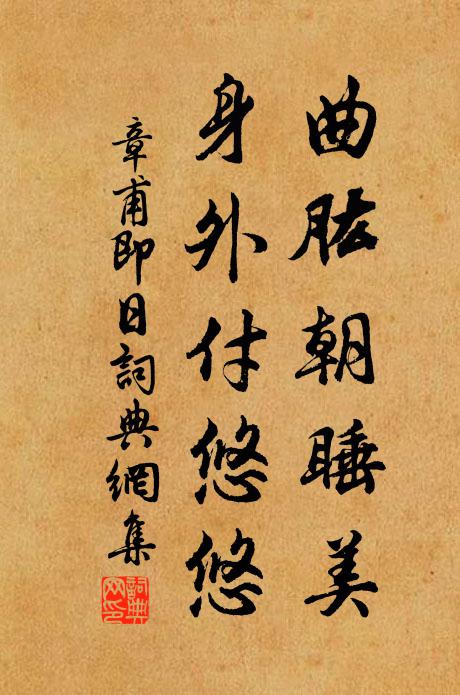 曲肱朝睡美
身外付悠悠
章甫即日詞典網集
詞典網印